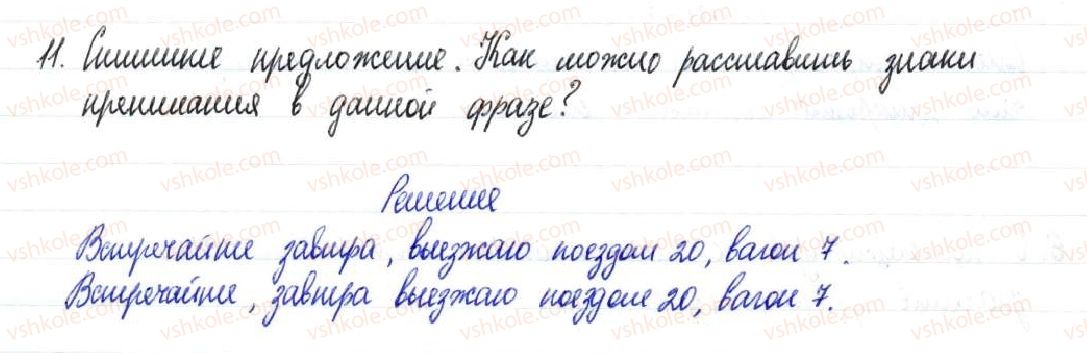 11. Спишите предложение. Как можно расставить знаки
препинания в данной фразе?
Решение
Встречайте завтра, выезжаю поездом 20, вагон 7.
Встречайте, завтра выезжаю поездом 20, вагон 7.